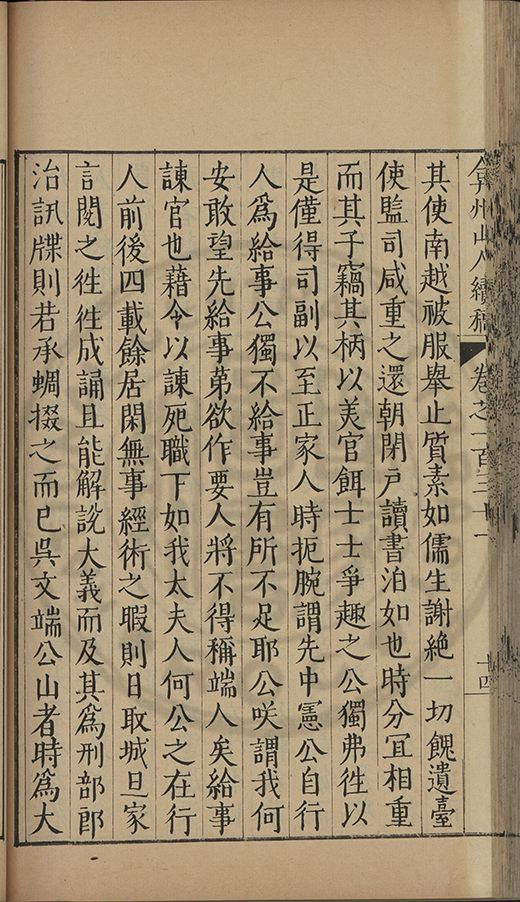 弇州山人續稿 卷之一百三十一 十四
其使南越被服舉止質素如儒生謝絶一切餽遺臺
使監司咸重之還朝閉戶讀書泊如也時分宜相重
而其子竊其柄以美官餌士士爭趣之公獨弗徃以
是僅得司副以至正家人時扼腕謂先中憲公自行
人爲給事公獨不給事豈有所不足耶公咲謂我何
安敢望先給事苐欲作要人將不得稱端人矣給事
諫官也藉令以諫死職下如我太夫人何公之在行
人前後四載餘居閑無事經術之暇則日取城旦家
言閱之徃徃成誦且能解說大義而及其爲刑部郎
治訊牒則若承蜩掇之而已吳文端公山者時爲大